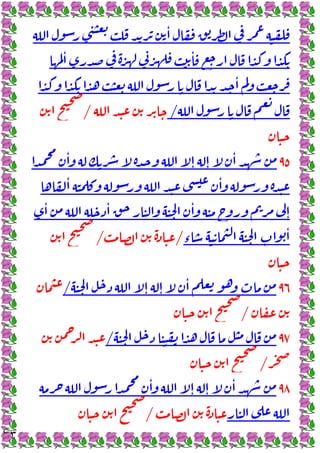 فلقيه عمر في الطريق، فقال أين تريد قلت بعثني رسول الله
بكذا وكذا قال ارجع فأبيت فلهزني لهزة في صدري ألمها
فرجعت ولم أجد بدا قال يا رسول الله بعثت هذا بكذا وكذا
قال نعم قال يا رسول الله/ جابر بن عبد الله / صحيح ابن
حبان
٩٥ من شهد أن لا إله إلا الله وحده لا شريك له وأن محمدا
عبده ورسوله وأن عيسى عبد الله ورسوله وكلمته ألقاها
إلى مريم وروح منه وأن الجنة والنار حق، أدخله الله من أي
أبواب الجنة الثمانية شاء/ عبادة بن الصامت/ صحيح ابن
حبان
٩٦ من مات وهو يعلم أن لا إله إلا الله دخل الجنة/ عثمان
بن عفان / صحيح ابن حبان
٩٧ من قال مثل ما قال هذا يقينا دخل الجنة/ عبد الرحمن بن
صخر / صحيح ابن حبان
٩٨ من شهد أن لا إله إلا الله وأن محمدا رسول الله حرمه
الله على النار عبادة بن الصامت / صحيح ابن حبان